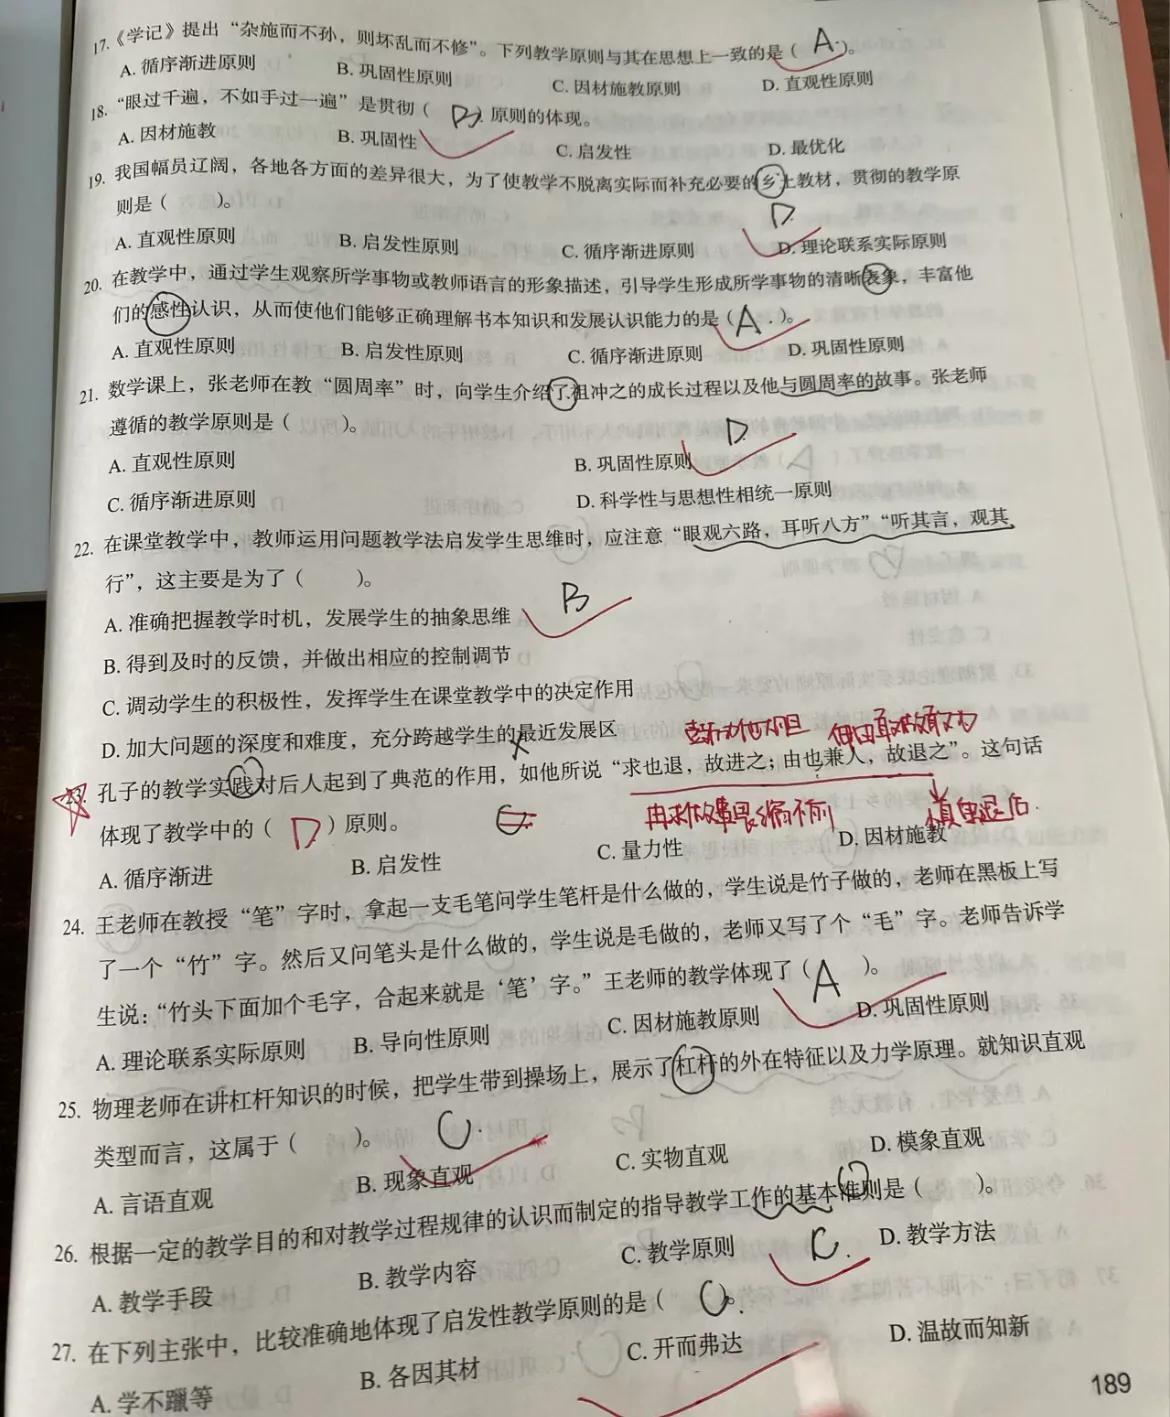 17.《学记》提出“杂施而不孙，则坏乱而不修”。下列教学原则与其在思想上一致的是（ A. ）。
A. 循序渐进原则 B. 巩固性原则 C. 因材施教原则 D. 直观性原则
18. “眼过千遍，不如手过一遍”是贯彻（ B ）原则的体现。
A. 因材施教 B. 巩固性 C. 启发性 D. 最优化
19. 我国幅员辽阔，各地各方面的差异很大，为了使教学不脱离实际而补充必要的乡土教材，贯彻的教学原
则是（ ）。 D
A. 直观性原则 B. 启发性原则 C. 循序渐进原则 D. 理论联系实际原则
20. 在教学中，通过学生观察所学事物或教师语言的形象描述，引导学生形成所学事物的清晰表象，丰富他
们的感性认识，从而使他们能够正确理解书本知识和发展认识能力的是（ A . ）。
A. 直观性原则 B. 启发性原则 C. 循序渐进原则 D. 巩固性原则
21. 数学课上，张老师在教“圆周率”时，向学生介绍了祖冲之的成长过程以及他与圆周率的故事。张老师
遵循的教学原则是（ ）。 D
A. 直观性原则 B. 巩固性原则
C. 循序渐进原则 D. 科学性与思想性相统一原则
22. 在课堂教学中，教师运用问题教学法启发学生思维时，应注意“眼观六路，耳听八方”“听其言，观其
行”，这主要是为了（ ）。 B
A. 准确把握教学时机，发展学生的抽象思维
B. 得到及时的反馈，并做出相应的控制调节
C. 调动学生的积极性，发挥学生在课堂教学中的决定作用
D. 加大问题的深度和难度，充分跨越学生的最近发展区
孔子的教学实践对后人起到了典范的作用，如他所说“求也退，故进之；由也兼人，故退之”。这句话
体现了教学中的（ D ）原则。
A. 循序渐进 B. 启发性 C. 量力性 D. 因材施教
24. 王老师在教授“笔”字时，拿起一支毛笔问学生笔杆是什么做的，学生说是竹子做的，老师在黑板上写
了一个“竹”字。然后又问笔头是什么做的，学生说是毛做的，老师又写了个“毛”字。老师告诉学
生说：“竹头下面加个毛字，合起来就是‘笔’字。”王老师的教学体现了（ A ）。
A. 理论联系实际原则 B. 导向性原则 C. 因材施教原则 D. 巩固性原则
25. 物理老师在讲杠杆知识的时候，把学生带到操场上，展示了杠杆的外在特征以及力学原理。就知识直观
类型而言，这属于（ ）。 C.
A. 言语直观 B. 现象直观 C. 实物直观 D. 模象直观
26. 根据一定的教学目的和对教学过程规律的认识而制定的指导教学工作的基本准则是（ ）。
A. 教学手段 B. 教学内容 C. 教学原则 C. D. 教学方法
27. 在下列主张中，比较准确地体现了启发性教学原则的是（ C ）。
A. 学不躐等 B. 各因其材 C. 开而弗达 D. 温故而知新
189